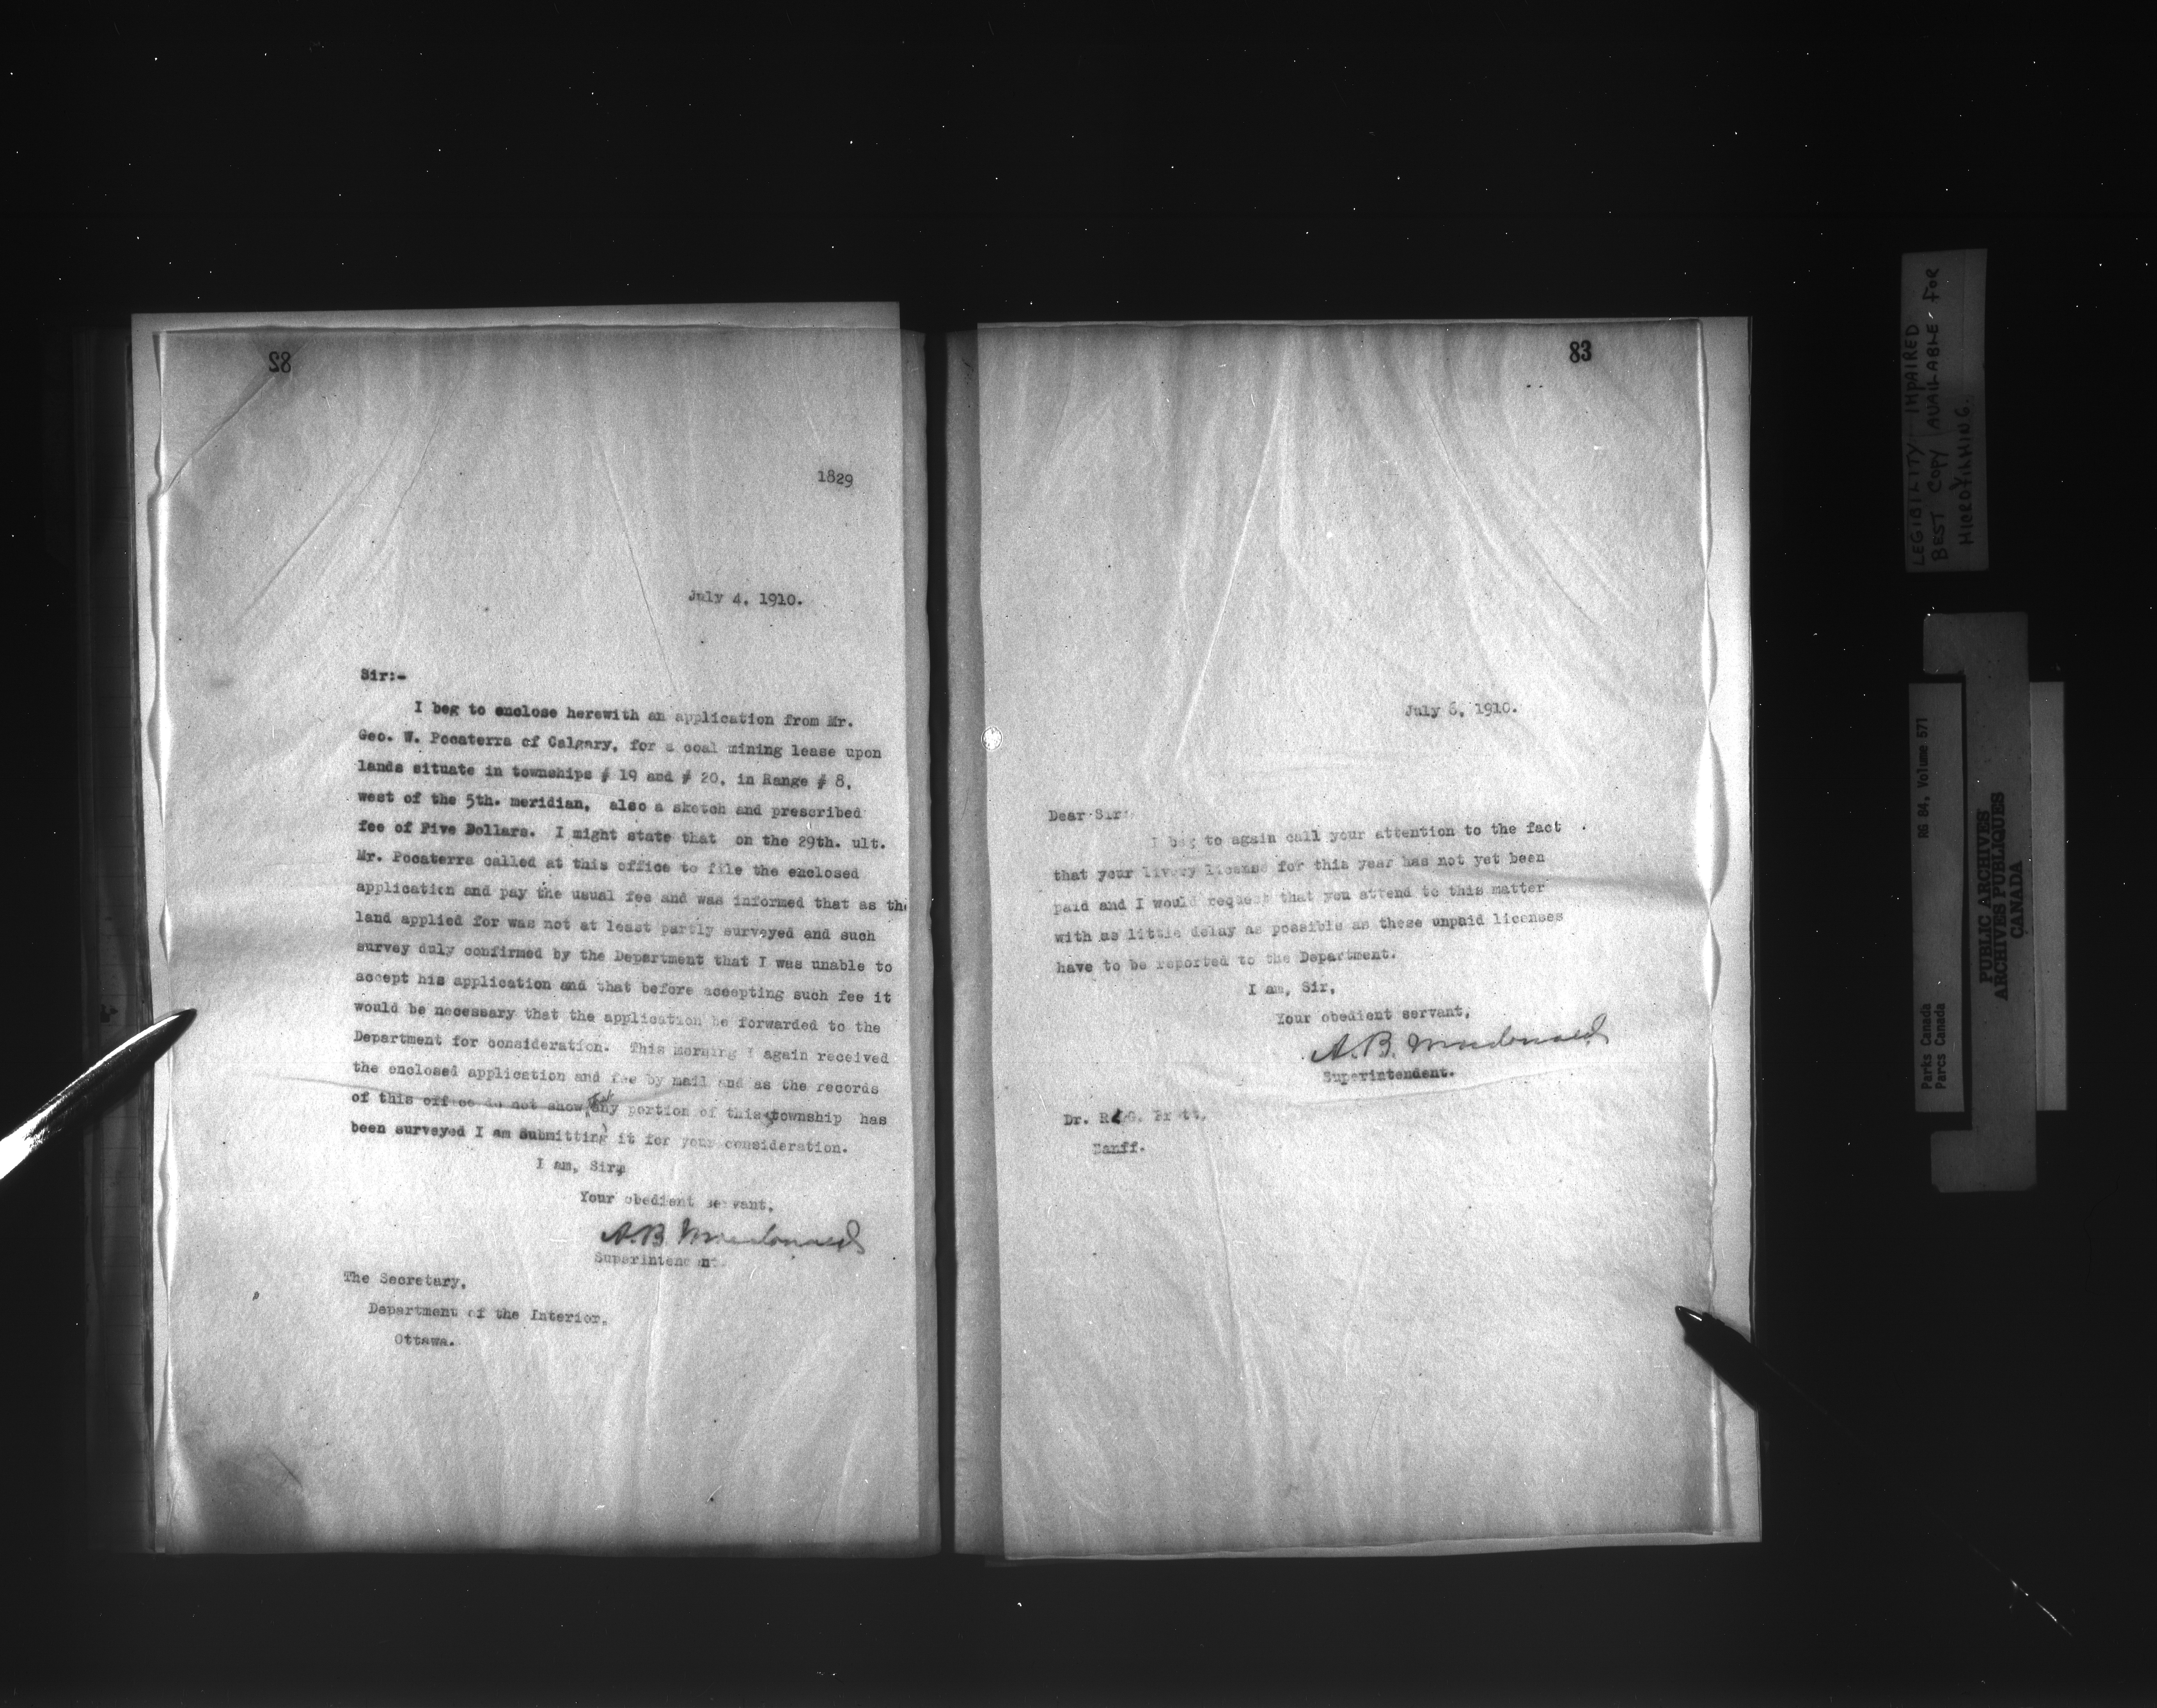 82
1829
July 4, 1910.
Sir:-
I beg to enclose herewith an application from Mr.
Geo. W. Pocaterra of Calgary, for a coal mining lease upon
lands situate in townships # 19 and # 20, in Range # 8,
west of the 5th. meridian, also a sketch and prescribed
fee of Five Dollars. I might state that on the 29th. ult.
Mr. Pocaterra called at this office to file the enclosed
application and pay the usual fee and was informed that as the
land applied for was not at least partly surveyed and such
survey duly confirmed by the Department that I was unable to
accept his application and that before accepting such fee it
would be necessary that the application be forwarded to the
Department for consideration. This morning I again received
the enclosed application and fee by mail and as the records
of this office do not show any portion of this township has
been surveyed I am submitting it for your consideration.
I am, Sir,
Your obedient servant,
A.B. Macdonald
Superintendent.
The Secretary,
Department of the Interior,
Ottawa.
83
July 6, 1910.
Dear Sir:
I beg to again call your attention to the fact
that your livery license for this year has not yet been
paid and I would request that you attend to this matter
with as little delay as possible as these unpaid licenses
have to be reported to the Department.
I am, Sir,
Your obedient servant,
A.B. Macdonald
Superintendent.
Dr. R. G. Brett,
Banff.
LEGIBILITY IMPAIRED
BEST COPY AVAILABLE FOR
MICROFILMING.
Parks Canada RG 84, Volume 571
Parcs Canada
PUBLIC ARCHIVES
ARCHIVES PUBLIQUES
CANADA